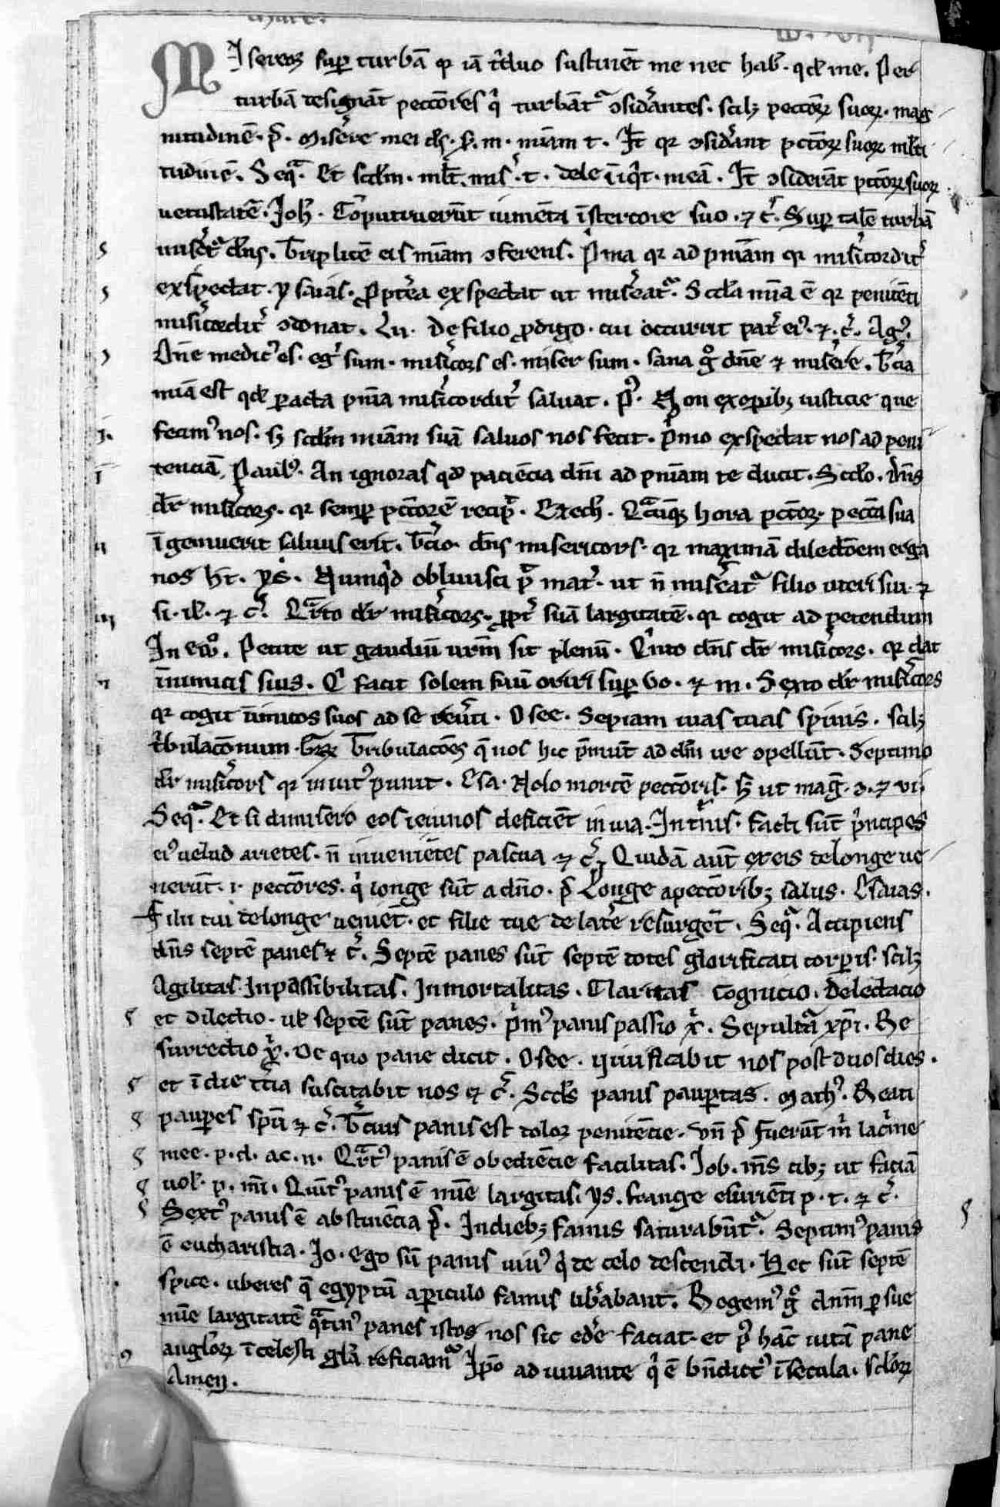 Misereor sup turbā qr iā t'duo sustinēt me nec hab̄. qd me. Per
turbā designāt peccōres q' turbātr ɔsidāntes. scilꝫ peccōꝝ suoꝝ. mag
nitudinē. p̄. Misēre mei ds. s. m. miām t. It qr ɔsidānt pctōꝝ suoꝝ mlti
tudinē. Seqr. Et scdm. mlt. mis. t. dele īiqt. meā. It ɔsiderāt pctōꝝ suoꝝ
vetustatē. Joh. Cōputruerūt iumēta ī stercore suo. ⁊ c. Sup talē turbā
misert dns. Triplicē eis miām ɔferens. Pma qr ad pniām qr misicordit
exspectat. ysaias. Proptea exspectat ut miseatr. Scda mīa ē qr penitēti
misicordit ɔdonat. Lu. De filio prodigo. cui occurrit pat ei. ⁊. c. Ag.
Dne medic es. eg sum. misicors es. miser sum. sana g dne ⁊ misere. Tcia
mīa est qd pacta pnīa misicordit saluat. p. Non ex opibꝫ iusticie que
fecim nos. sꝫ scdm miām suā saluos nos fecit. Pmo exspectat nos ad peni
tenciā. Paul. An ignoras qd paciēcia dni ad pniam te ducit. Scdo. dns
dr misicors. qr semp pctorē recipt. Ezech. Qcūqꝫ hora pctōꝝ peccā sua
īgemuerit saluus erit. Tcio. dns misericors. qr maximā dilectōem erga
nos ht. ys. Nunqd obliuisci pt mat. ut n miseatr filio uteri sui. ⁊
si. il. ⁊ c. Qrto dr misicors. ppt suā largitatē. qr cogit ad petendum
In ew. Petite ut gaudiū urm sit plenū. Qnto dns dr misicors. qr dat
inimicis suis. Q facit solem suū oriri sup bo. ⁊ m. Sexto dr misicors
qr cogit inimicos suos ad se reuti. Osee. Sepiam uias tuas spinis. scilꝫ
tbulacōnum. Tribulacōes q nos hic pmūt ad dm ire ɔpellūt. Septimo
dr misicors qr inuit punit. Esa. Nolo mortē peccōris. sꝫ ut mag. ɔ. ⁊ vi.
Seqr. Et si dimisero eos ieiunos deficiēt in uia. In tnis. facti sūt pncipes
ei uelud arietes. n inuenietes pascua ⁊ c. Quidā aut ex eis de longe ue
nerūt. i. peccōres. q' longe sūt a dno. p Longe a peccōribꝫ salus. Esaias.
Filii tui de longe ueniēt. et filie tue de late resurgēt. Seqr. Accipiens
dns septē panes ⁊ c. Septē panes sūt septē dotes glorificati corpis. scilꝫ
Agilitas. Inpassibilitas. Inmortalitas. Claritas cognicio. delectacio
et dilectio. ul septē sūt panes. pm panis passio x. Sepultā xpi. Re
surrectio x. De quo pane dicit. Osee. uiuificabit nos post duos dies.
et ī die tcia suscitabit nos ⁊ c. Scds panis pauptas. Math. Beati
paupes spū ⁊ c. Tcius panis est dolor penitēcie. vn p fuerūt m lacime
mee. p. d. ac. n. Qrt panis ē obediēcie facilitas. Joh. ms cibꝫ ut faciā
uol. p. mi. Quīt panis ē mīe largitas. ys. frange esurienti p. t. ⁊ c.
Sext panis ē abstinēcia p. In diebꝫ famis saturabūtr. Septim panis
ē eucharistia. Jo. ego sū panis uiu q de celo descendi. Hec sūt septē
spice. uberes q egyptū a piculo famis libabant. Rogem g dnm p sue
mīe largitatē qtin panes istos nos sic edere faciat. et p hāc uitā pane
angloꝝ ī celesti gla reficiam Ipo adiuuante q ē bndict ī secula. scloꝝ
Amen.